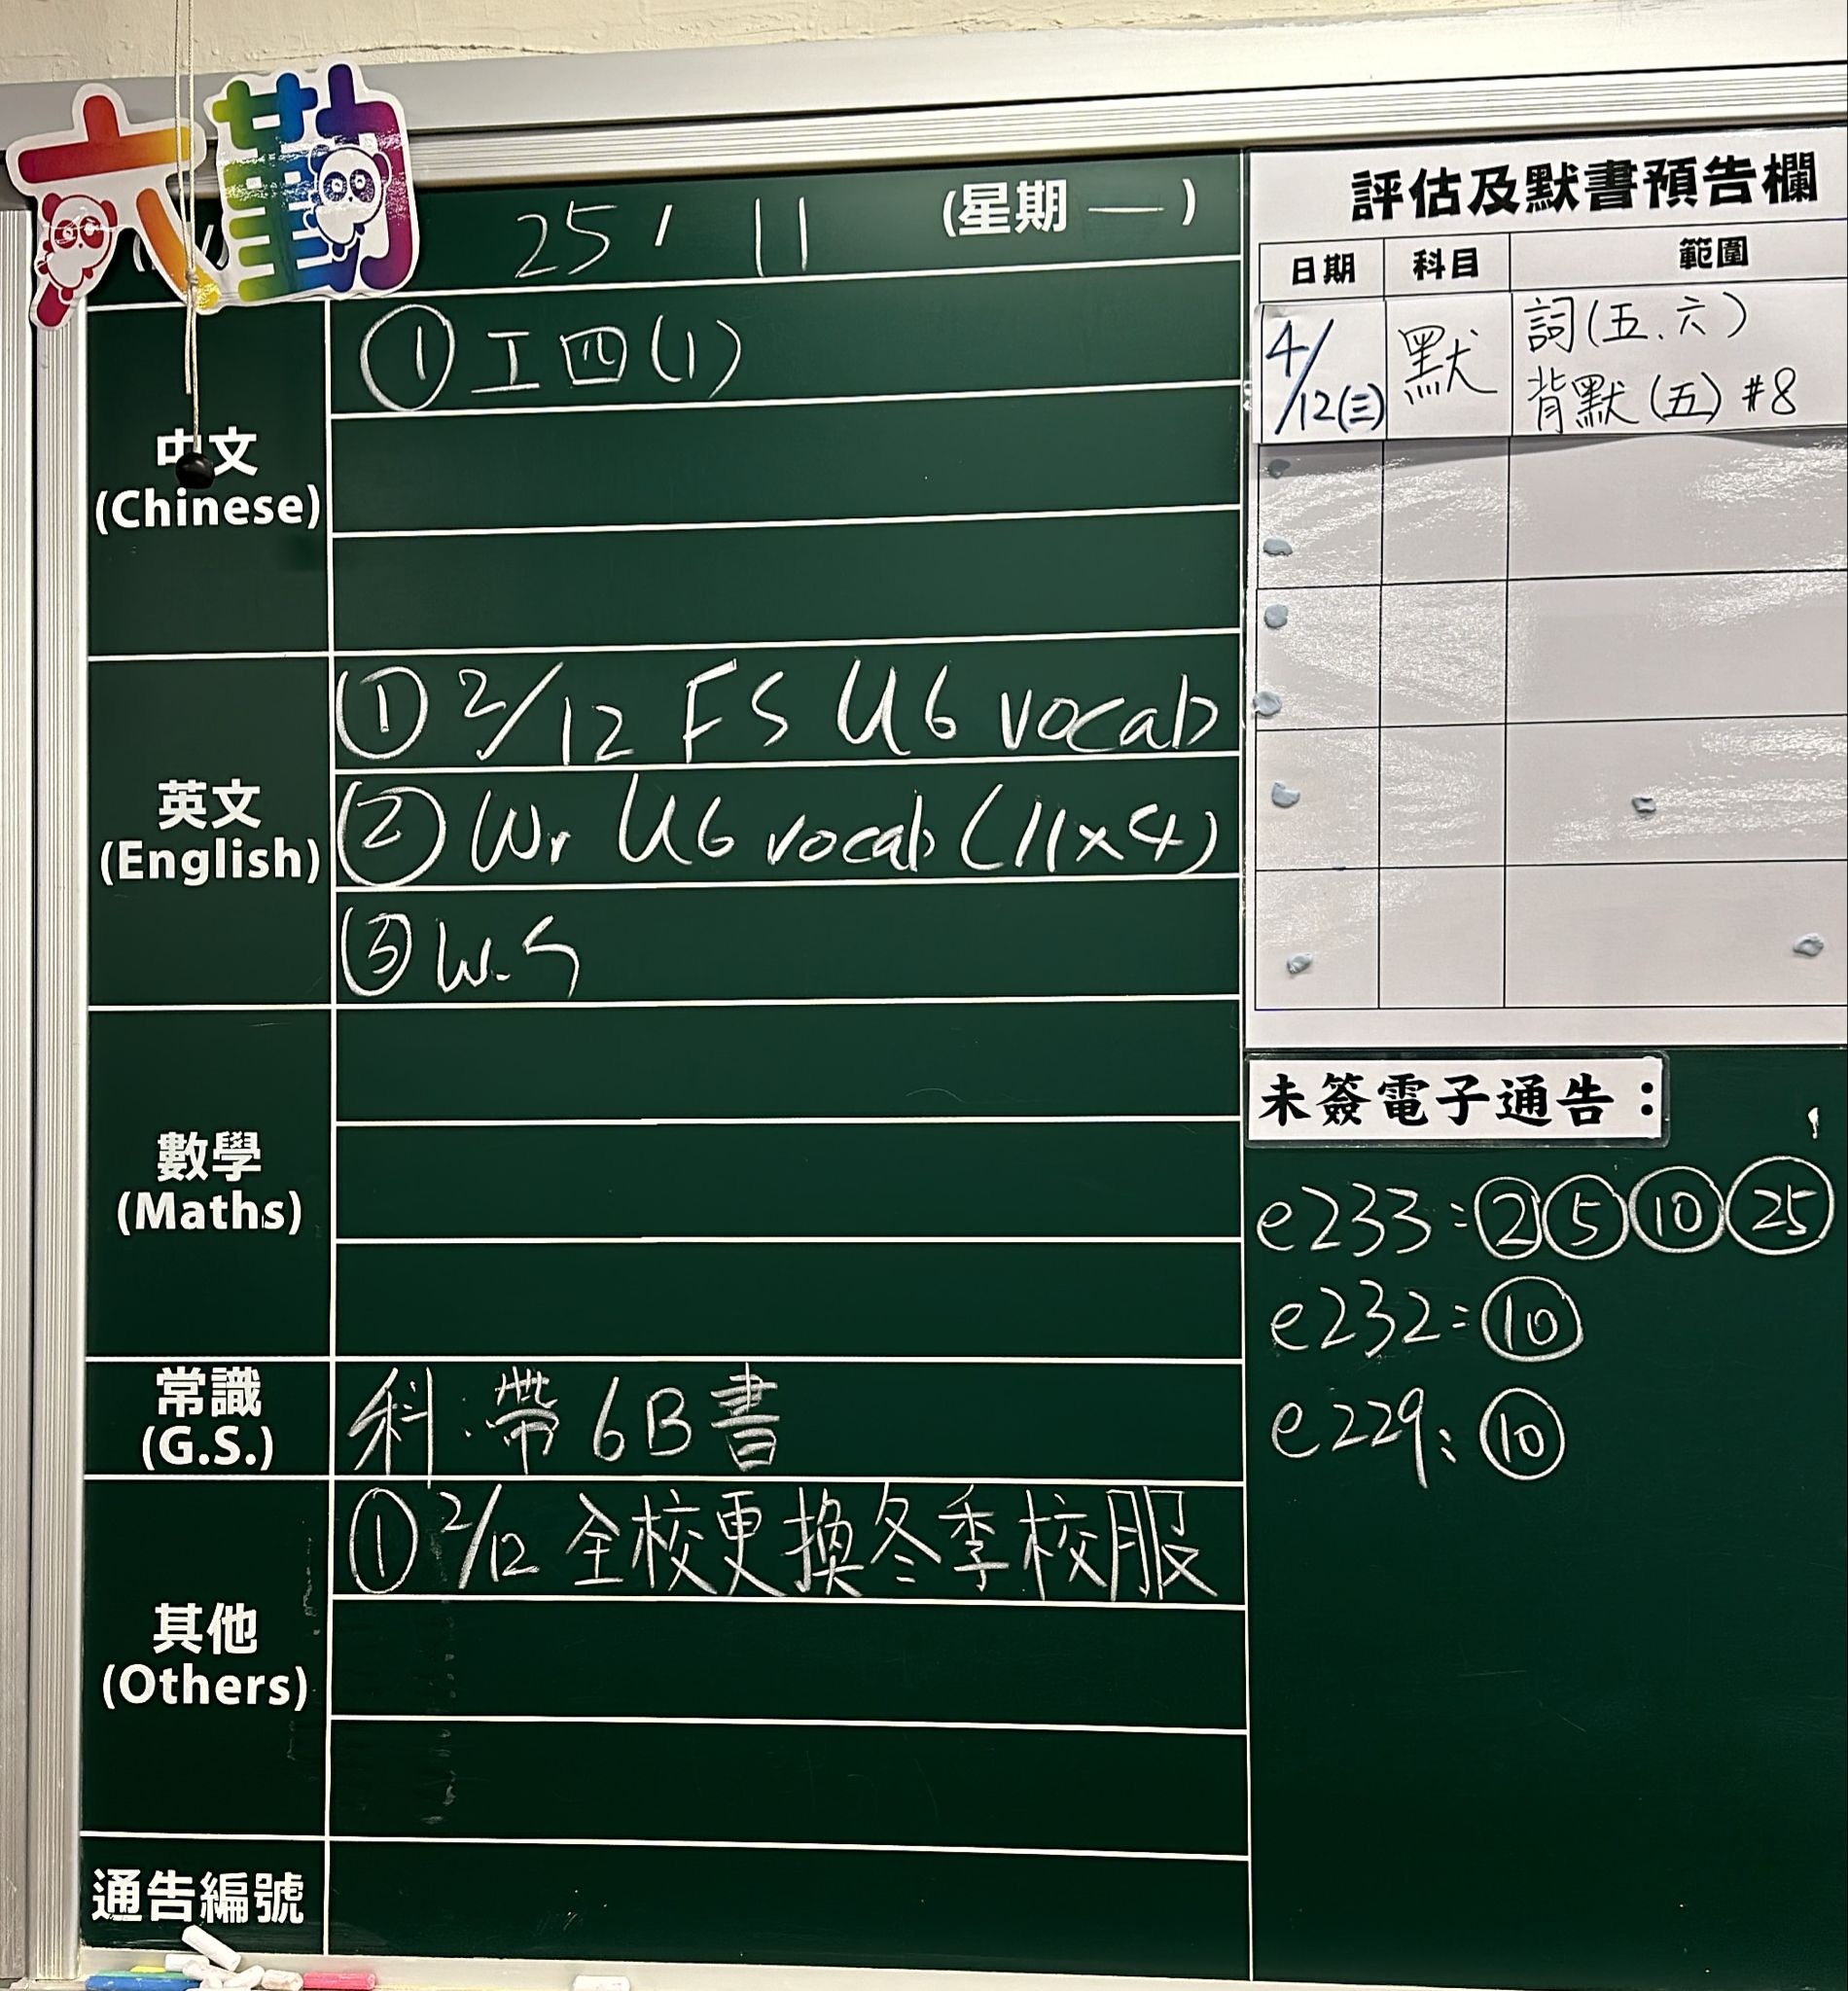 六勤
25 / 11 (星期 一 )
中文
(Chinese)
① 工四(1)
英文
(English)
① 2/12 FS U6 vocab
② Wr U6 vocab (11x4)
③ W.S
數學
(Maths)
常識
(G.S.)
科:帶6B書
其他
(Others)
① 2/12 全校更換冬季校服
通告編號
評估及默書預告欄
日期 科目 範圍
4/12(三) 默 詞(五、六)
背默(五)#8
未簽電子通告：
e233:②⑤⑩㉕
e232:⑩
e229:⑩